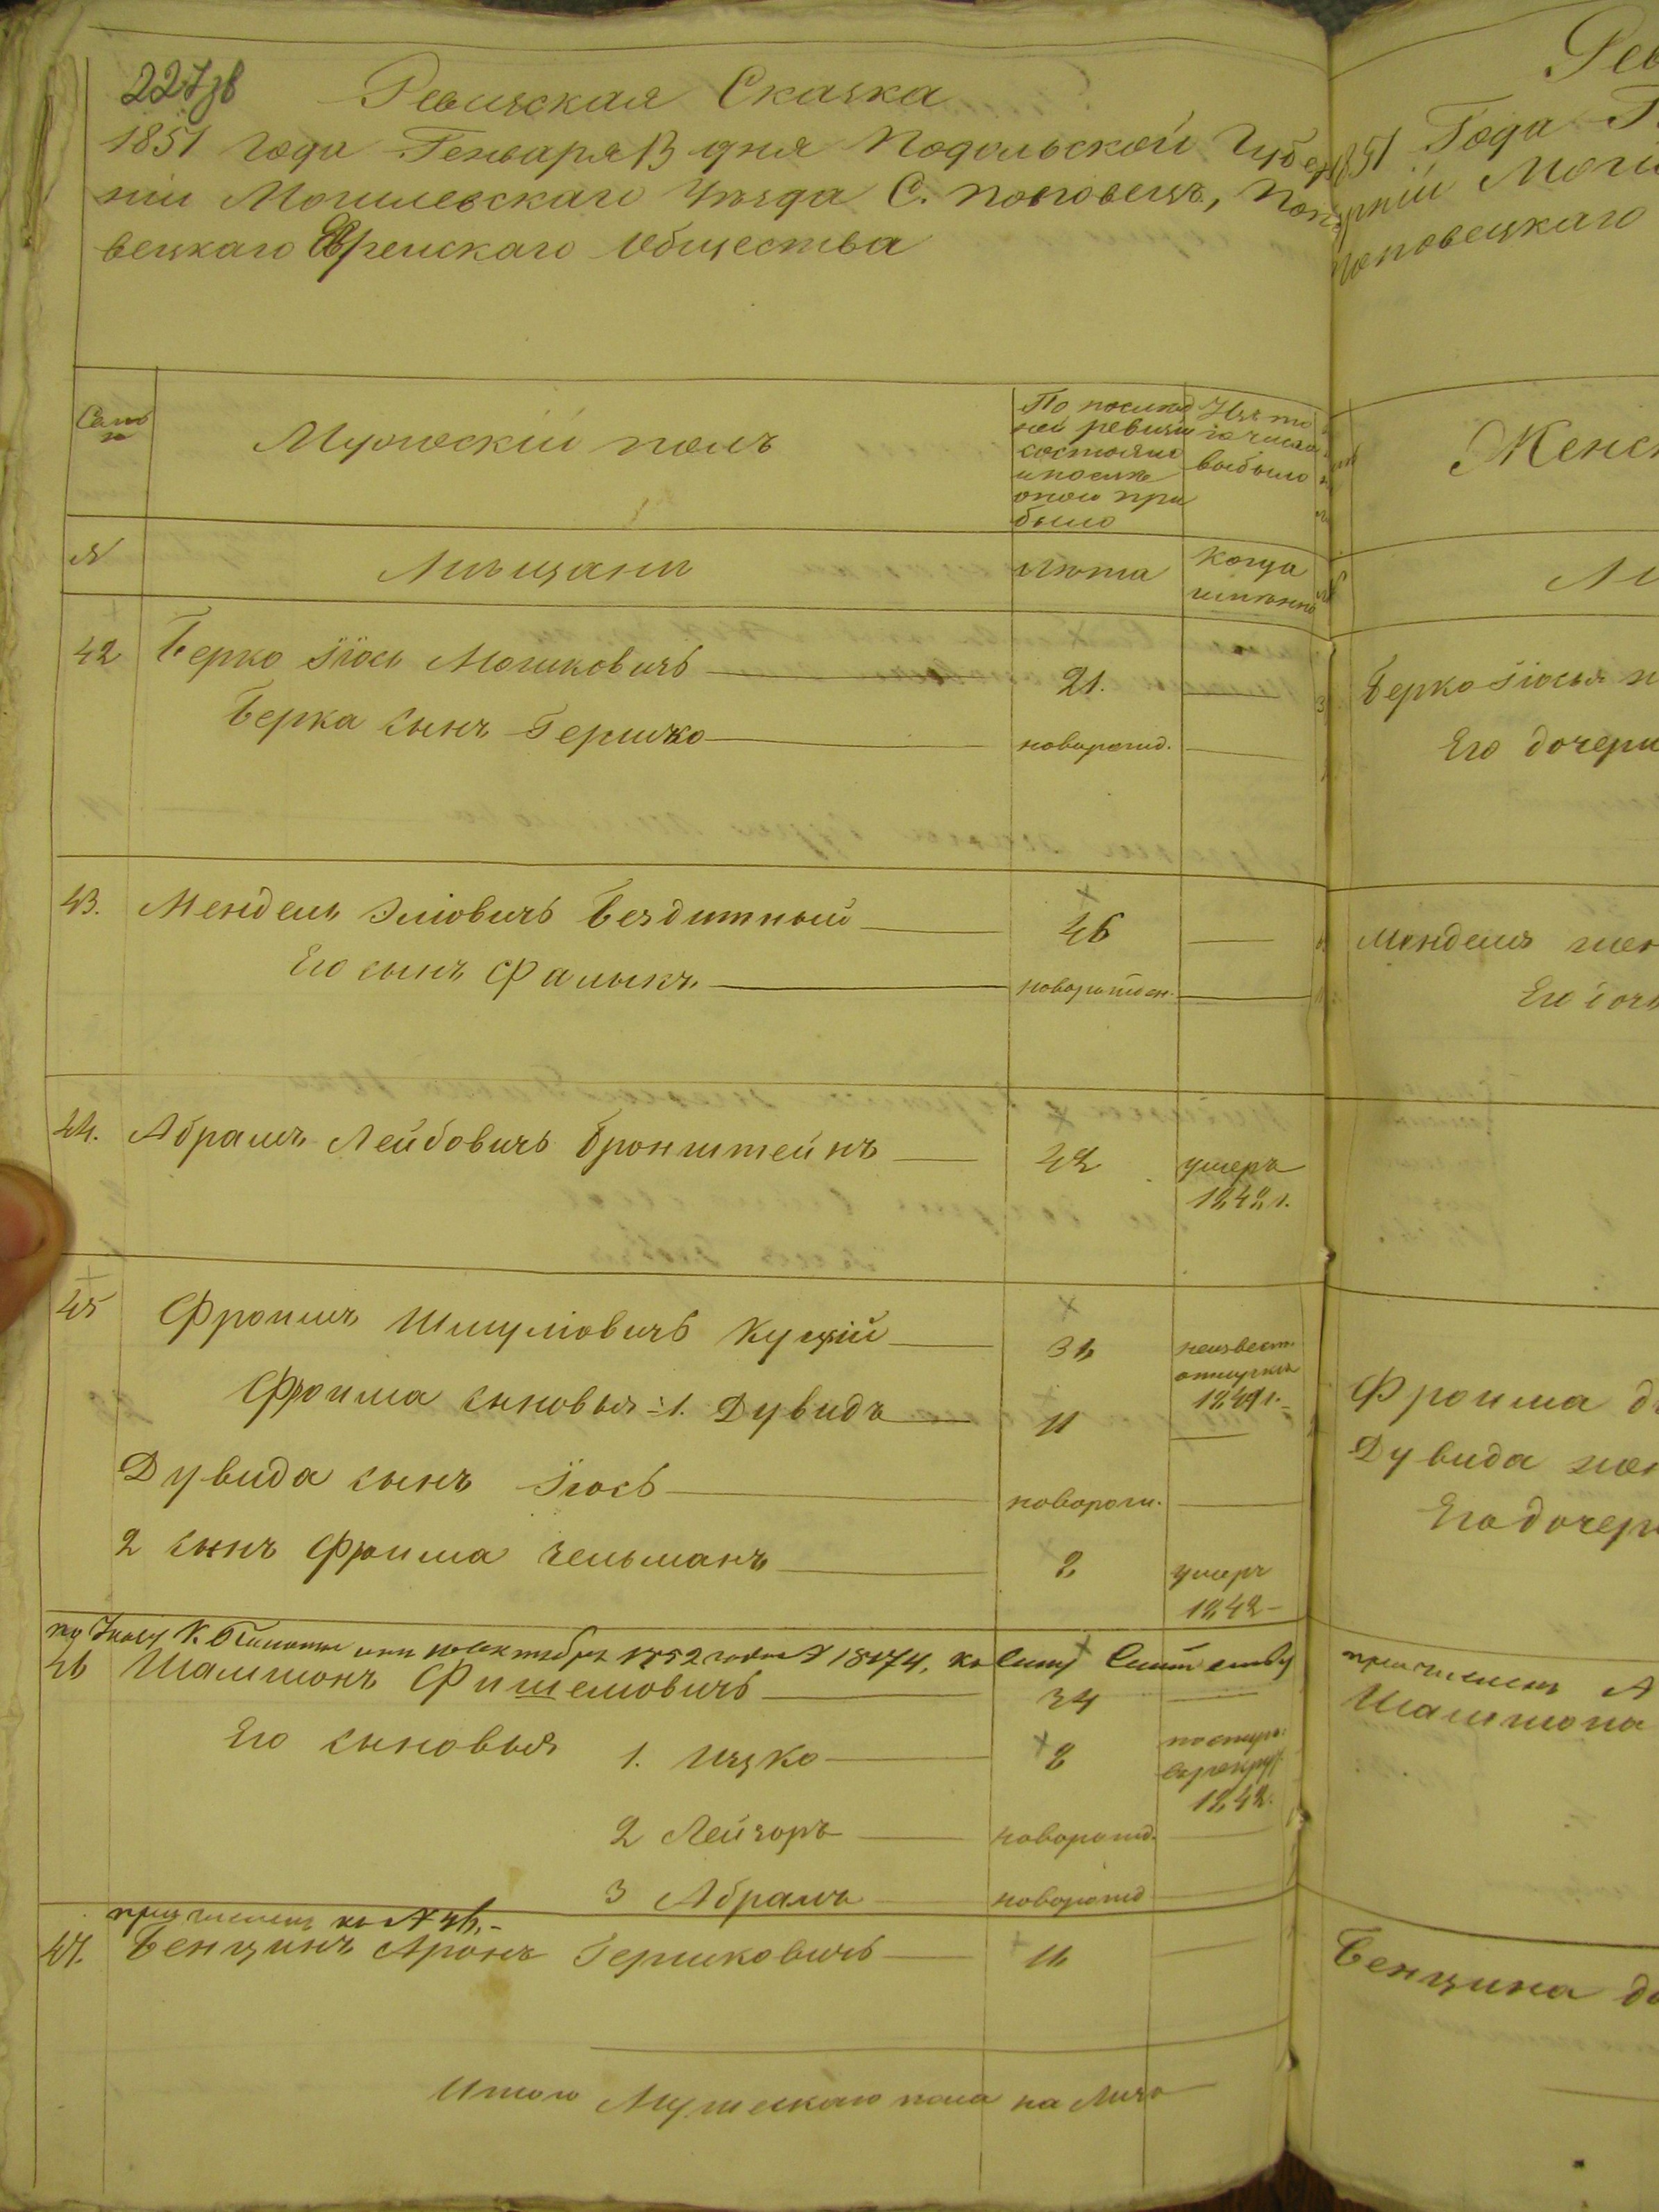 227зв
Ревизская Сказка
1851 года Генваря 13 дня Подольской Губер
ніи Могилевскаго Уѣзда С. Поповецъ, Попо
вецкаго Еврейскаго Общества
Семьи
Мужескій полъ
По послѣд
ней ревизіи
состояло
и послѣ
оной при
было
Изъ то
го числа
выбыло
№
Мѣщане
Лѣта
Когда
именно
42 Берко Іось Мошковичъ 21.
Берка сынъ Гершко новорожд.
43. Мендель Эліовичъ Бездитный 46
Его сынъ Фалыкъ новорожден.
44. Абрамъ Лейбовичъ Бронштейнъ 42 умеръ
1842 г.
45 Фроимъ Шмуліовичъ Куцій 31 неизвест.
отлучкѣ
1849 г.
Фроима сыновья: 1. Дувидъ 11
Дувида сынъ Іось новорож.
2 сынъ Фроима Зельманъ 2 умеръ
1842
по Указу К. Палаты 1852 года № 15174, къ
46 Шамшонъ Фишелиовичъ 34
Его сыновья 1. Ицко 8 поступ.
въ рекрут.
1848.
2 Лейзоръ новорожд.
3 Абрамъ новорожд
причисленъ къ №
47. Бенцинъ Аронъ Гершковичъ 11
Итого Мужескаго пола на Лицо
Рев
1851 Года Г
берніи Моги
Поповецкаго
Женск
М
Берко Іося ж
Его дочери
Менделя жен
Его дочь
Фроима д
Дувида жен
Его дочери
причислены №
Шамшона
Бенцина до